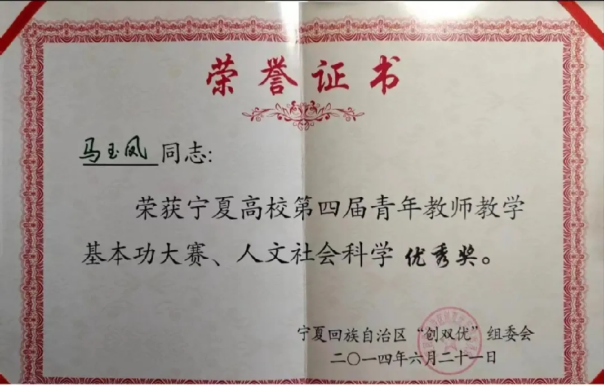 荣誉证书
马玉凤 同志:
荣获宁夏高校第四届青年教师教学
基本功大赛、人文社会科学 优秀奖。
宁夏回族自治区“创双优”组委会
二〇一四年六月二十一日